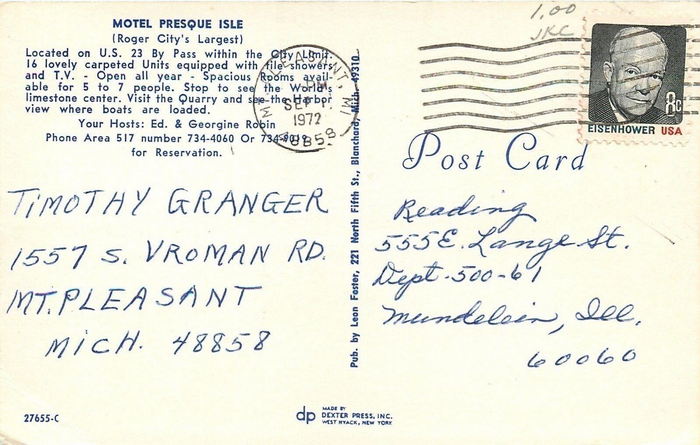 MOTEL PRESQUE ISLE
(Roger City's Largest)
Located on U.S. 23 By Pass within the City Limit.
16 lovely carpeted Units equipped with tile showers
and T.V. - Open all year - Spacious Rooms avail-
able for 5 to 7 people. Stop to see the World's
limestone center. Visit the Quarry and see the Harbor
view where boats are loaded.
Your Hosts: Ed. & Georgine Robin
Phone Area 517 number 734-4060 Or
for Reservation.
TIMOTHY GRANGER
1557 S. VROMAN RD.
MT. PLEASANT
MICH. 48858
27655-C
Pub. by Leon Foster, 221 North Fifth St., Blanchard, Mich. 49310
MT. PLEASANT, MI
PM
SEP
1972
48858
dp MADE BY
DEXTER PRESS, INC.
WEST NYACK, NEW YORK
1.00
JKC
8c
EISENHOWER USA
Post Card
Reading
555 E. Lange St.
Dept-500-61
Mundelein, Ill.
60060